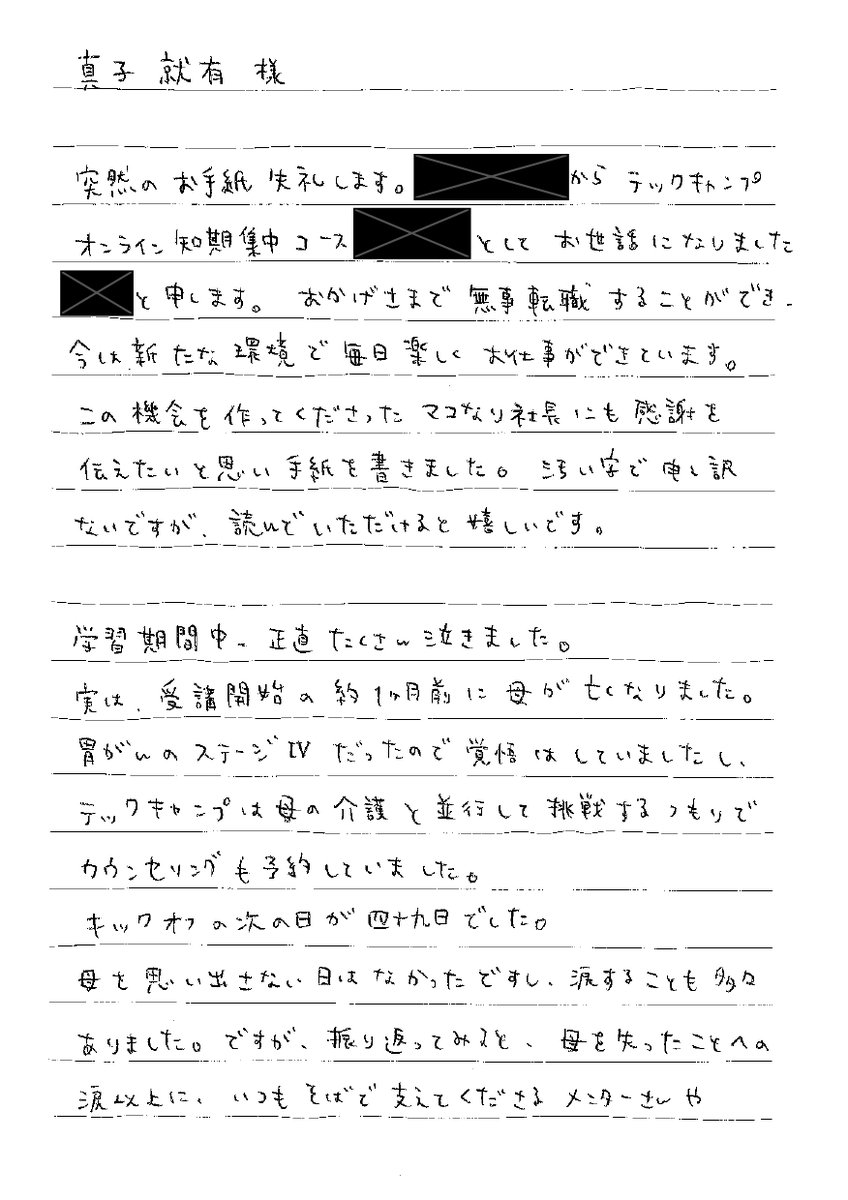 真子 就有 様
突然のお手紙失礼します。から テックキャンプ
オンライン短期集中コースとして お世話になりました
と申します。おかげさまで無事転職することができ、
今は新たな環境で毎日楽しくお仕事ができています。
この機会を作ってくださったマコなり社長にも感謝を
伝えたいと思い手紙を書きました。汚い字で申し訳
ないですが、読んでいただけると嬉しいです。
学習期間中、正直たくさん泣きました。
実は、受講開始の約1ヶ月前に母が亡くなりました。
胃がんのステージⅣだったので覚悟はしていましたし、
テックキャンプは母の介護と並行して挑戦するつもりで
カウンセリングも予約していました。
キックオフの次の日が四十九日でした。
母を思い出さない日はなかったですし、涙することも多々
ありました。ですが、振り返ってみると、母を失ったことへの
涙以上に、いつもそばで支えてくださるメンターさんや